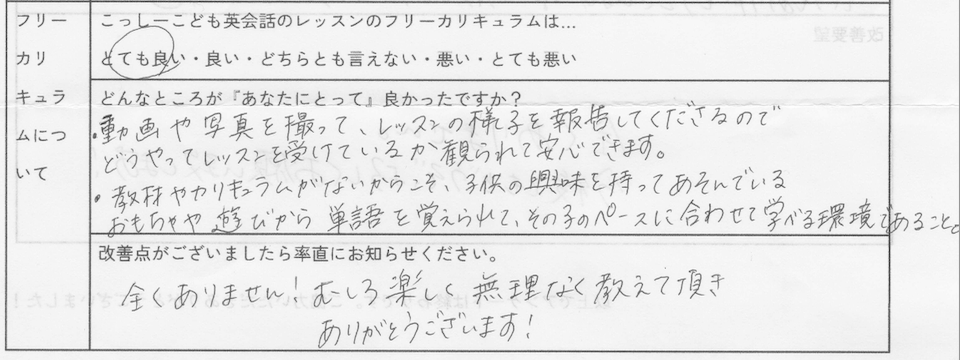 フリー
カリ
キュラ
ムにつ
いて
こっしーこども英会話のレッスンのフリーカリキュラムは…
とても良い・良い・どちらとも言えない・悪い・とても悪い
どんなところが『あなたにとって』良かったですか？
・動画や写真を撮って、レッスンの様子を報告してくださるので
どうやってレッスンを受けているか観られて安心できます。
・教材やカリキュラムがないからこそ、子供の興味を持ってあそんでいる
おもちゃや遊びから単語を覚えられて、その子のペースに合わせて学べる環境であること。
改善点がございましたら率直にお知らせください。
全くありません！むしろ楽しく無理なく教えて頂き
ありがとうございます！